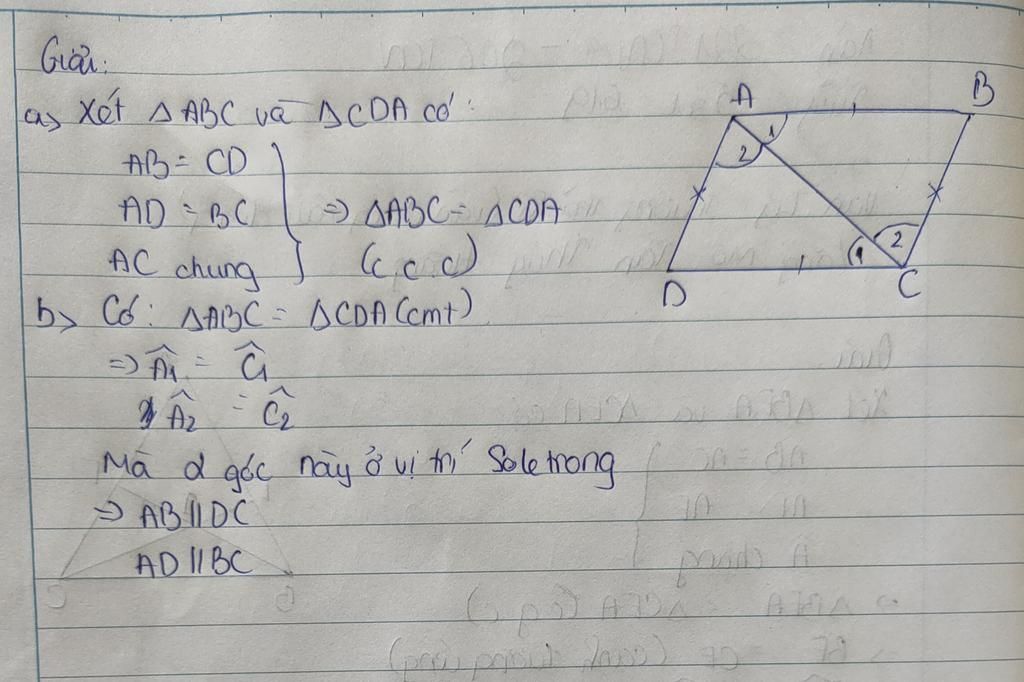 Giải:
a> Xét ΔABC và ΔCDA có:
AB = CD
AD = BC
AC chung
=> ΔABC = ΔCDA
(c.c.c)
b> Có: ΔABC = ΔCDA (cmt)
=> Â1 = Ĉ1
Â2 = Ĉ2
Mà 2 góc này ở vị trí Sole trong
=> AB // DC
AD // BC
A
B
1
2
2
1
D
C